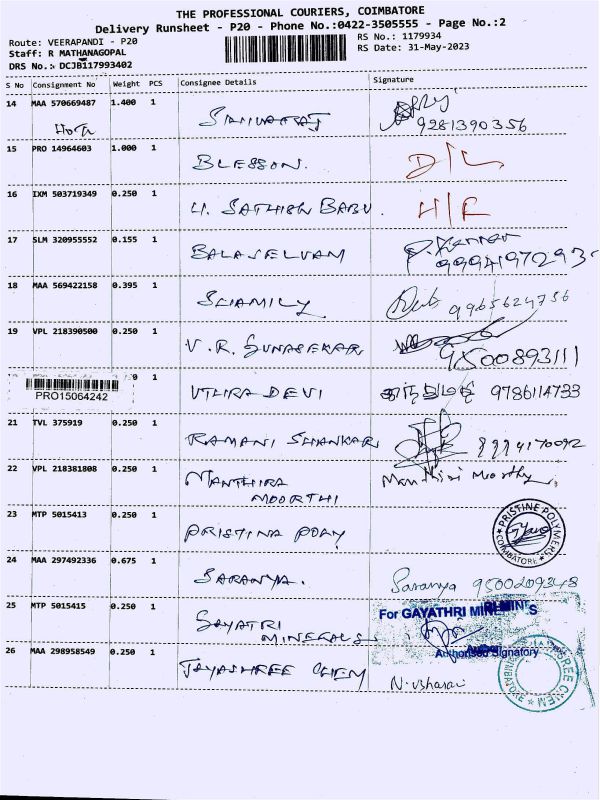 THE PROFESSIONAL COURIERS, COIMBATORE
Delivery Runsheet - P20 - Phone No.:0422-3505555 - Page No.:2
Route: VEERAPANDI - P20
RS No.: 1179934
Staff: R MATHANAGOPAL
RS Date: 31-May-2023
DRS No.: DCJB117993402
S No Consignment No Weight PCS Consignee Details Signature
14 MAA 570669487 1.400 1
9281390356
15 PRO 14964603 1.000 1 BLESSON. D/L
16 IXM 503719349 0.250 1 U. SATHISH BABU. H/R
17 SLM 320955552 0.155 1 BALASELVAM
18 MAA 569422158 0.395 1 SHAMILY 9965624756
19 VPL 218390500 0.250 1 V.R. GUNASEKAR 9500893111
PRO15064242 1 UTHRA DEVI 9786114733
21 TVL 375919 0.250 1 RAMANI SHANKAR
22 VPL 218381808 0.250 1 MANTHIRA Manthiri Moorthy
MOORTHI
23 MTP 5015413 0.250 1 PRISTINA POLY PRISTINE POLYMERS COIMBATORE
24 MAA 297492336 0.675 1 SARANYA. Saranya 9500209348
25 MTP 5015415 0.250 1 GAYATRI For GAYATHRI MINERALS
MINERALS Authorised Signatory
26 MAA 298958549 0.250 1 JAYASHREE CHEM